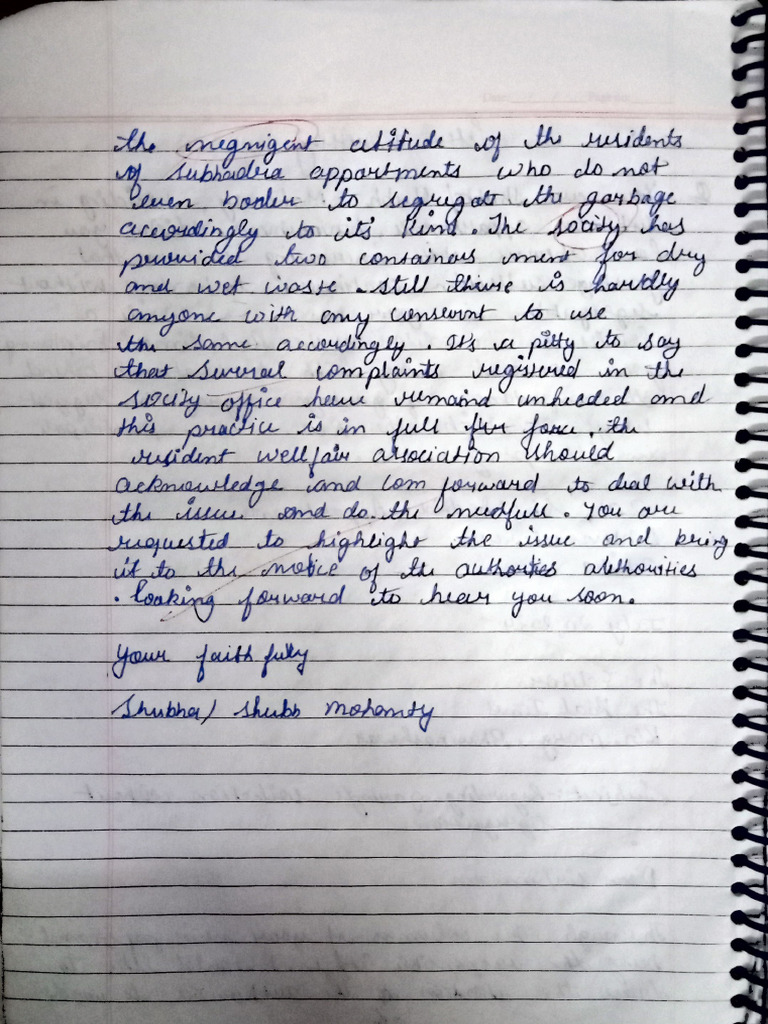 the negnigent attitude of the residents
of subhadra appartments who do not
even boder to segregate the garbage
accordingly to its' kind. The socity has
provided two containors ment for dry
and wet waste. still there is hardly
anyone with any conservnt to use
the same accordingly. It's a pitty to say
that several complaints registered in the
socity office have remaind unheeded and
this practice is in full for force. the
resident wellfair association should
acknowledge and com forward to deal with
the issue and do the needfull. You are
requested to highlight the issue and bring
it to the notice of the authorties athhorities
. looking forward to hear you soon.
Your faith fully
Shubha/ Shubh Mohanty